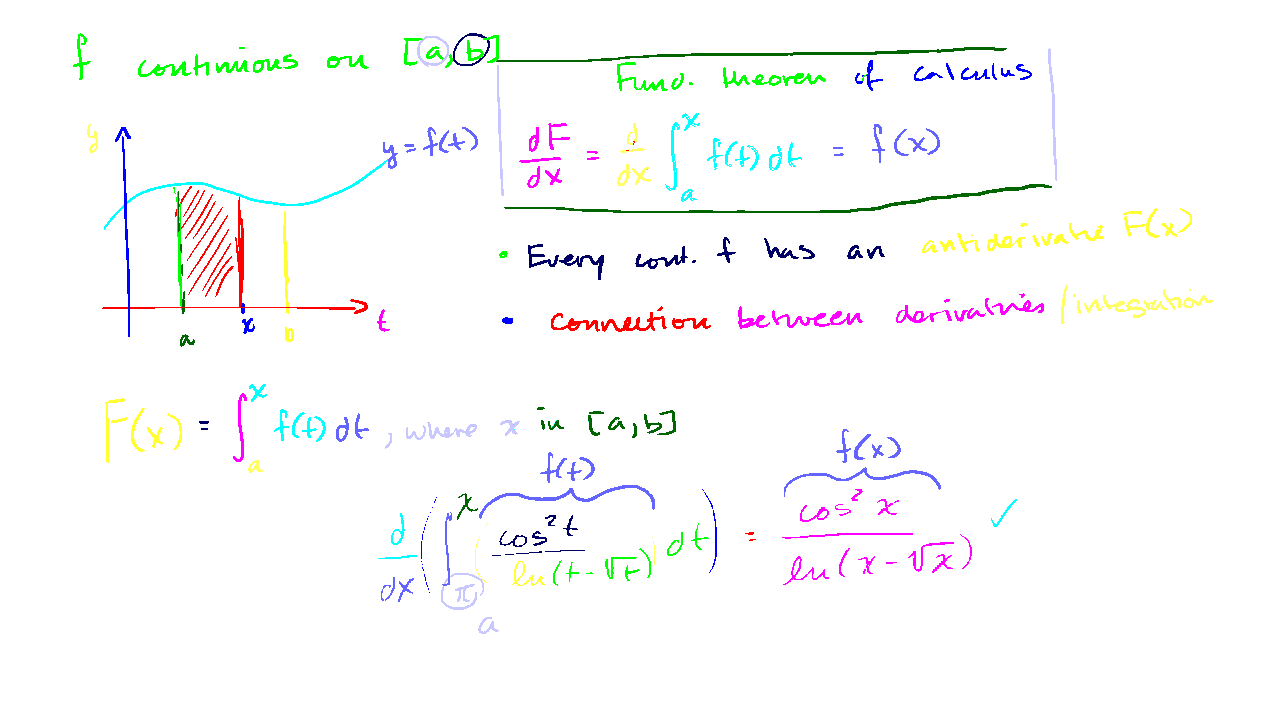 f continuous on [a, b]
Fund. theorem of calculus
dF/dx = d/dx ∫_a^x f(t) dt = f(x)
y
y = f(t)
a x b t
• Every cont. f has an antiderivative F(x)
• Connection between derivatives / integration
F(x) = ∫_a^x f(t) dt, where x in [a, b]
f(t) f(x)
d/dx ( ∫_π^x cos² t / ln(t - √t) dt ) = cos² x / ln(x - √x) ✓
a